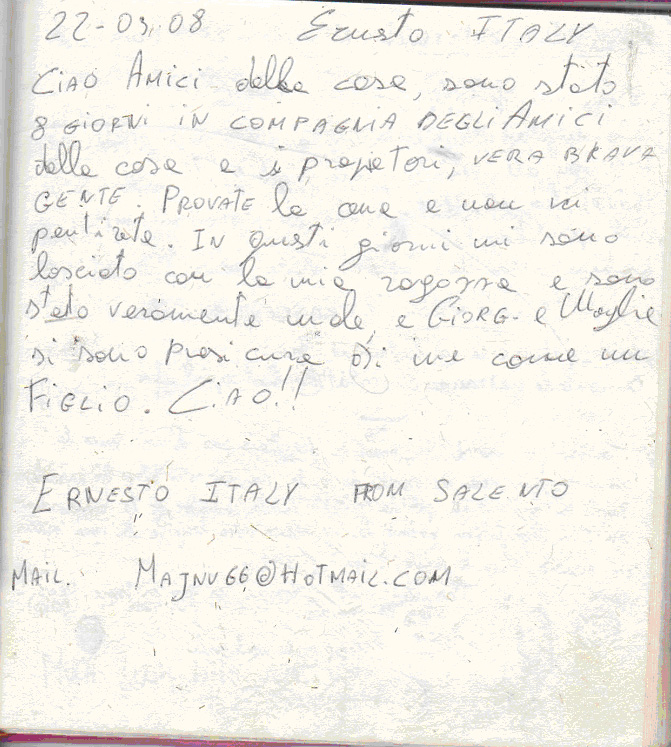 22-03.08 Ernesto ITALY
CIAO AMICI della casa, sono stato
8 GIORNI IN COMPAGNIA DEGLI AMICI
della casa e i propietori, VERA BRAVA
GENTE. PROVATE la casa e non vi
pentirete. IN questi giorni mi sono
lasciato con la mia ragazza e sono
stato veramente male, e GIORG- e Moglie
si sono presi cura di me come un
FIGLIO. CIAO!!
ERNESTO ITALY FROM SALENTO
MAIL. MAJNU66@HOTMAIL.COM